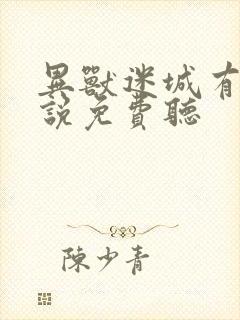 異獸迷城有
說免費聽
陳少青